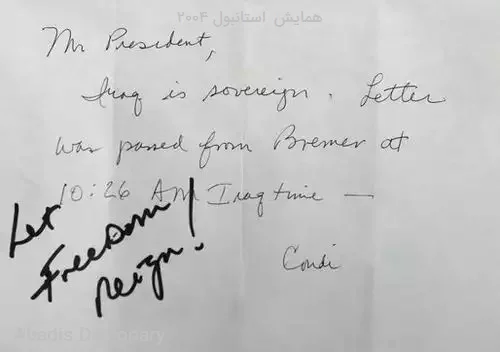 همایش استانبول ۲۰۰۴
Mr President,
Iraq is sovereign. Letter
was passed from Bremer at
10:26 AM Iraq time —
Condi
Let
Freedom
Reign!
Abadis Dictionary